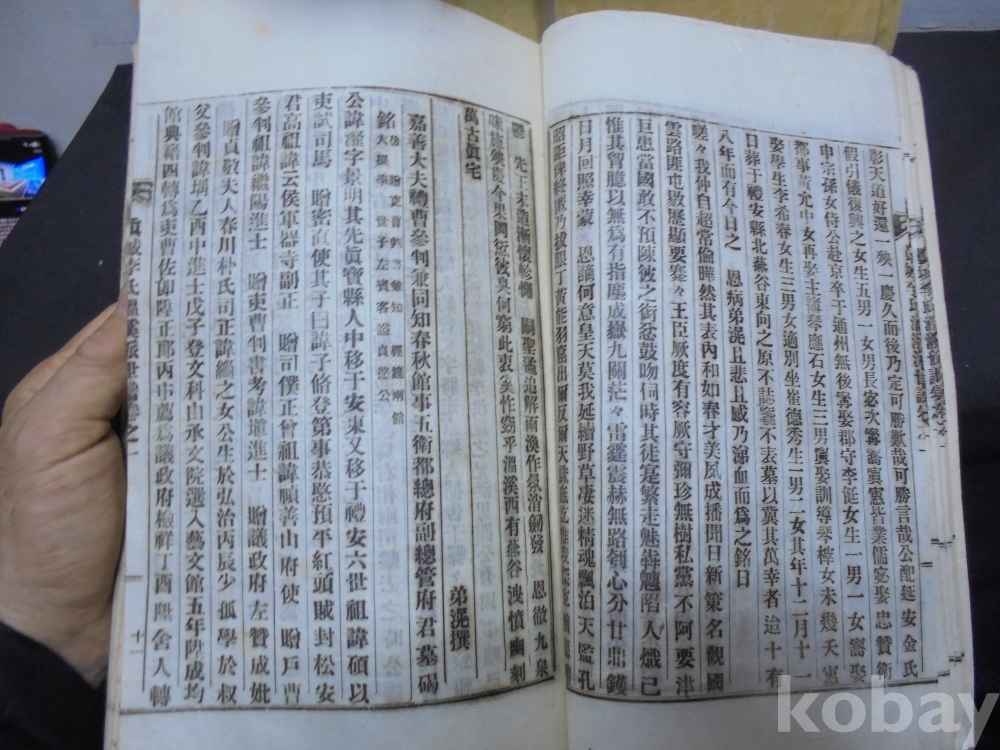 彰天道好還一殃一慶久而後乃定可勝歎哉可勝言哉公配延安金氏
假引儀復興之女生五男一女男長宓次寗喬寘憲皆業儒宓娶忠贊衛
申宗孫女侍公赴京卒于通州無後寗娶郡守李誕女生一男一女喬娶
都事黃允中女再娶主簿琴應石女生三男寘娶訓導琴榟女未幾夭憲
娶學生李希春女生三男女適別坐崔德秀生二男二女其年十二月十一
日葬于禮安縣北燕谷東向之原不誌窆不表墓以冀其萬幸者迨十有
八年而有今日之 恩病弟滉且悲且感乃涕血而爲之銘曰
嗟々我仲自超常倫曄然其表內和如春才美夙成播聞日新策名觀國
雲路匪屯敭歷顯要蹇々王臣厥度有容厥守彌珍無樹私黨不阿要津
巨慝當國敢不預陳彼之銜忿鼓吻伺時其徒寔繁走魅犇魑陷人熾己
惟其胷臆以無爲有指塵成嶽九關茫々雷霆震赫無路刳心分甘鼎鑊
日月回照幸蒙 恩謫何意皇天莫我延續野草凄迷精魂飄泊天監孔
先王末造漸懷軫惻 嗣聖遹追解雨渙作氛消劒發 恩徹九泉
萬古眞宅
弟滉撰
嘉善大夫禮曹參判兼同知春秋館事五衛都總府副總管府君墓碣
銘
公諱瀣字景明其先眞寶縣人中移于安東又移于禮安六世祖諱碩以
吏試司馬 贈密直使其子曰諱子脩登第事恭愍預平紅頭賊封松安
君高祖諱云侯軍器寺副正 贈司僕正曾祖諱禎善山府使 贈戶曹
參判祖諱繼陽進士 贈吏曹判書考諱埴進士 贈議政府左贊成妣
贈貞敬夫人春川朴氏司正諱緇之女公生於弘治丙辰少孤學於叔
父參判諱堣乙酉中進士戊子登文科由承文院選入藝文館五年陞成均
館典籍四轉爲吏曹佐郞陞正郞丙申薦爲議政府檢詳丁酉陞舍人轉
十一
kobay